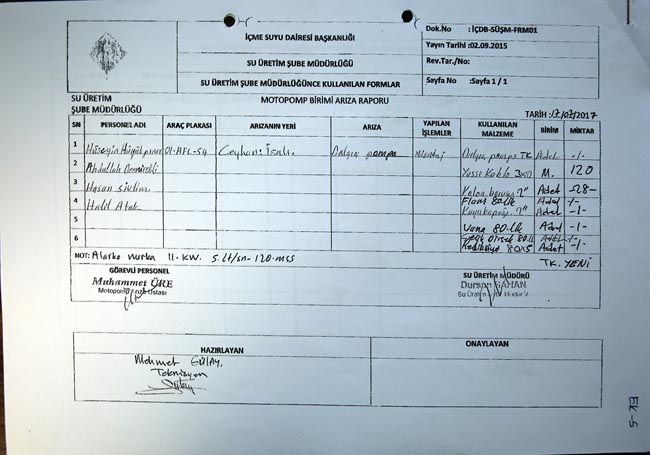 İÇME SUYU DAİRESİ BAŞKANLIĞI
SU ÜRETİM ŞUBE MÜDÜRLÜĞÜ
SU ÜRETİM ŞUBE MÜDÜRLÜĞÜNCE KULLANILAN FORMLAR
Dok.No : İÇDB-SÜŞM-FRM01
Yayın Tarihi :02.09.2015
Rev.Tar./No:
Sayfa No :Sayfa 1 / 1
SU ÜRETİM
ŞUBE MÜDÜRLÜĞÜ
MOTOPOMP BİRİMİ ARIZA RAPORU
TARİH :17/07/2017
SN PERSONEL ADI ARAÇ PLAKASI ARIZANIN YERİ ARIZA YAPILAN İŞLEMLER KULLANILAN MALZEME BİRİM MİKTAR
1 Hüseyin 01-AFL-54 Ceyhan: İsalı. Dalgıç pompa Montaj Dalgıç pompa TK. Adet -1-
2 Abdullah Demirelli Yassı Kablo M. 120
3 Hasan Kolon borusu 2" Adet -28-
4 Halil Atak Flanş 80.lik Adet -1-
Kuyu kapağı. 2" Adet -1-
5 Vana 80.lik Adet -1-
Dirsek 80.lik ADET -1-
6 Rediksiyon 80x5 Adet -1-
NOT: Alarko marka 11. KW. 5 lt/sn-120-mss TK. YENİ
GÖREVLİ PERSONEL
Muhammet ÜRE
Motopomp Arıza Ustası
SU ÜRETİM MÜDÜRÜ
Dursun ŞAHAN
Su Üretim Şube Müdür V.
HAZIRLAYAN
ONAYLAYAN
Mehmet GÜLAY.
Teknisyen
Ek-5